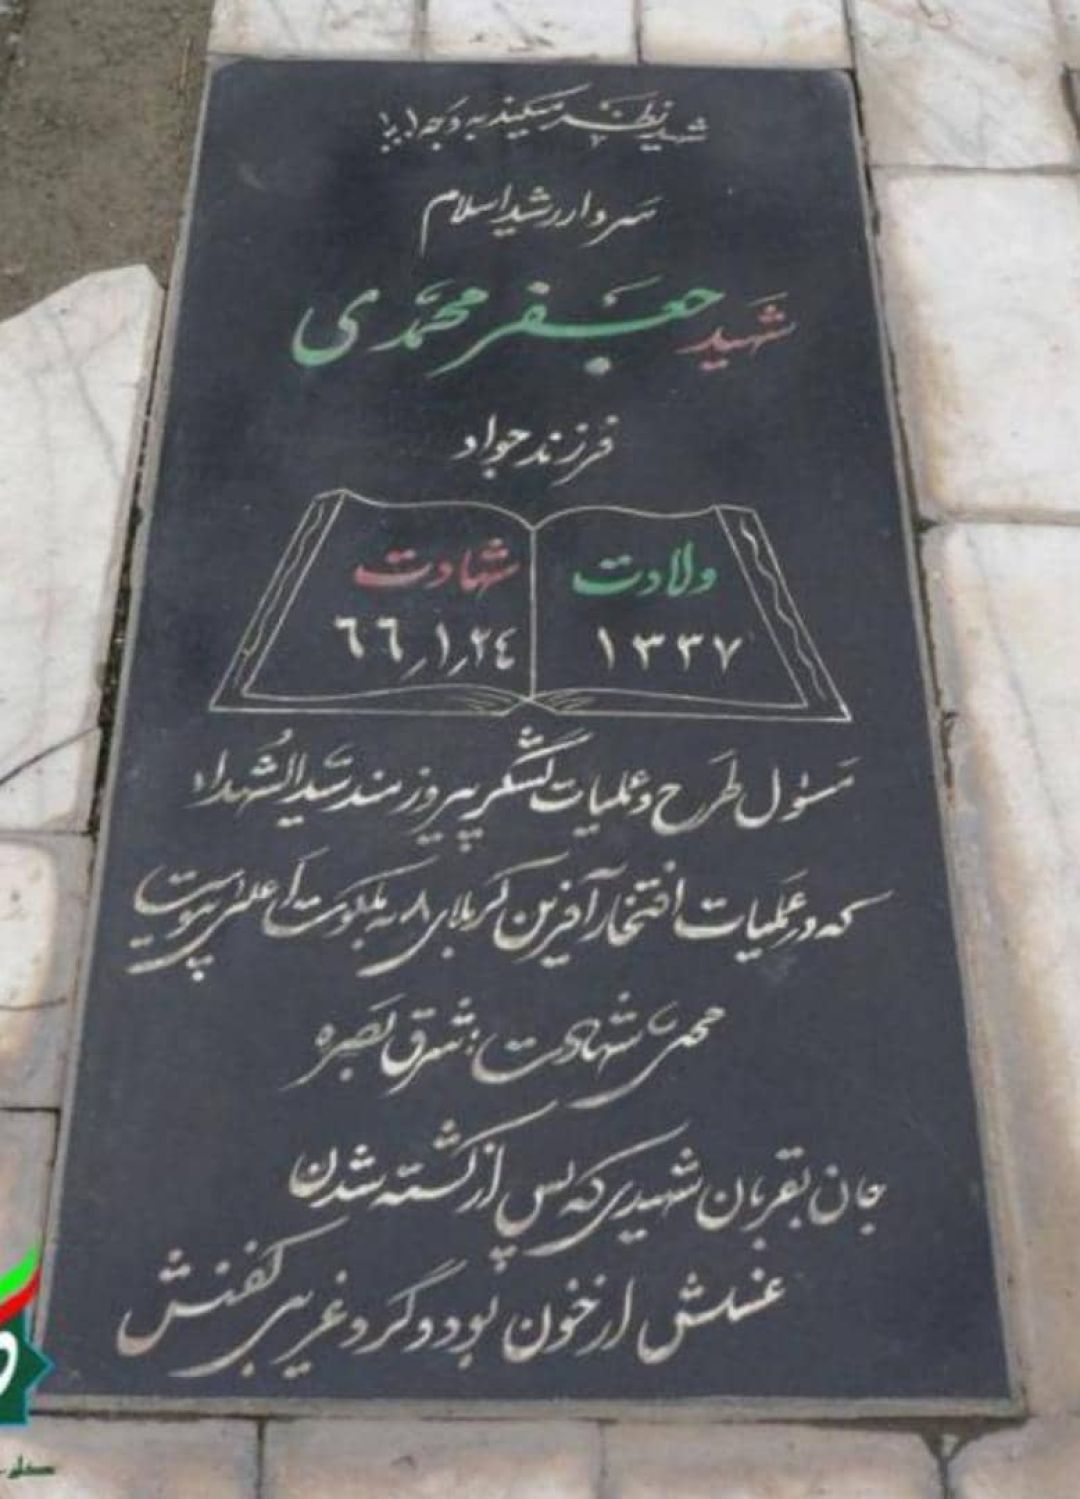 شهید نظر میکند به وجه الله
سردار رشید اسلام
شهید جعفر محمدی
فرزند جواد
ولادت
۱۳۳۷
شهادت
٦٦٫۱٫۲٤
مسٔول طرح و عملیات لشگر پیروزمند سیدالشهداء
که در عملیات افتخار آفرین کربلای ۸ به ملکوت اعلی پیوست
محل شهادت: شرق بصره
جان بقربان شهیدی که پس از کشته شدن
غسلش از خون بود و گرد غریبی کفنش